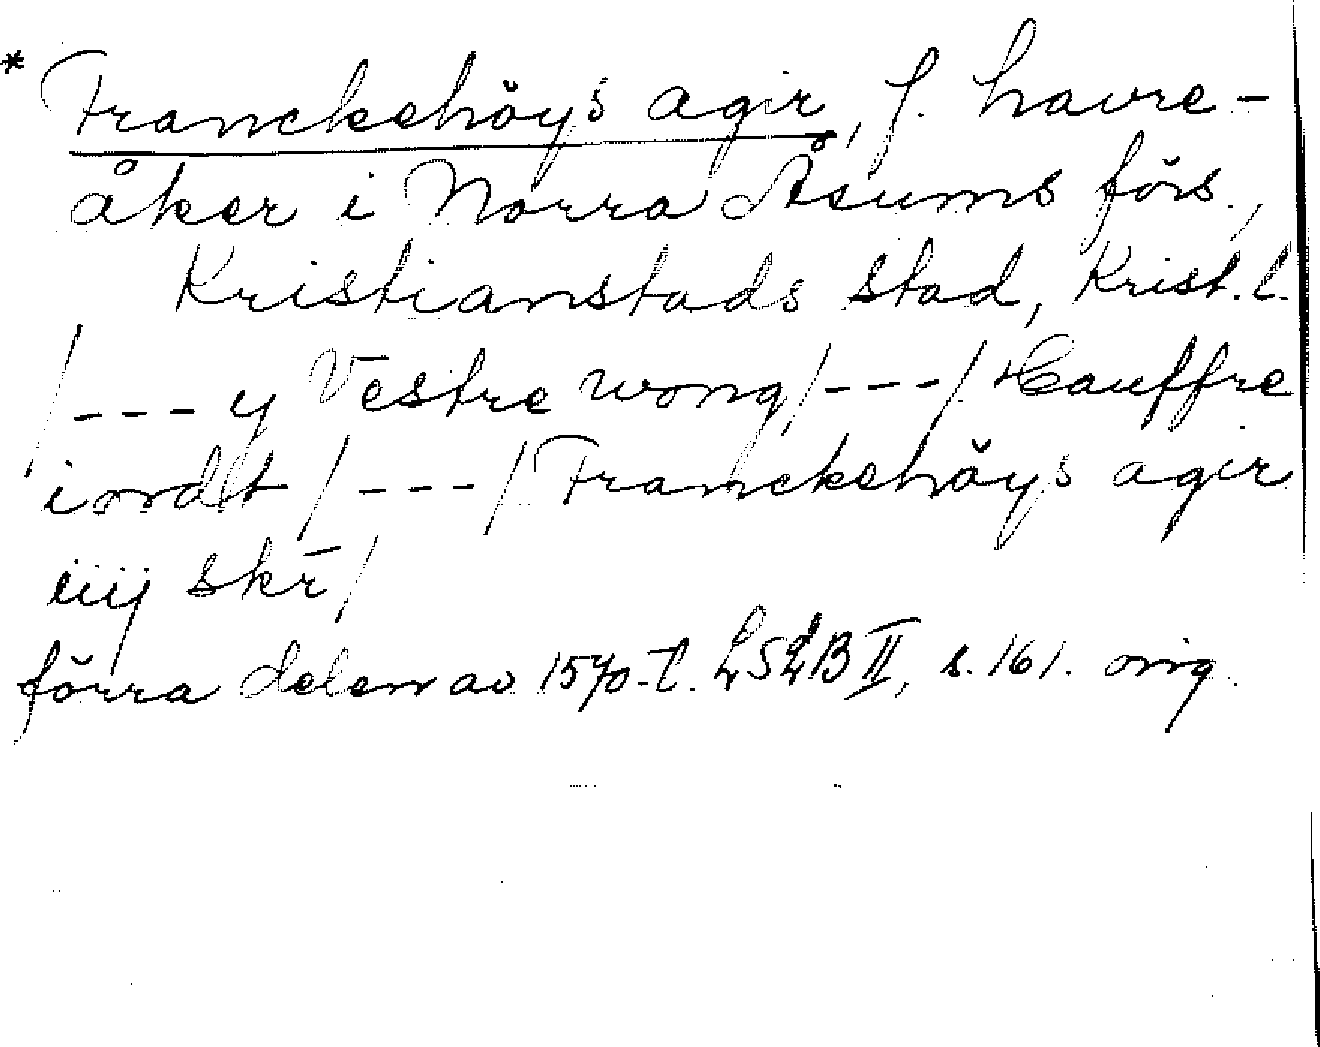 * Franckehöys agir, f. havre-
åker i Norra Åsums förs.,
Kristianstads stad, Krist. l.
/--- y Vestre wong /---/ Hauffre
iordt /---/ Franckehöys agir
iiij skr̄ /
förra delen av 1570-t. LSLB II, s. 161. orig.